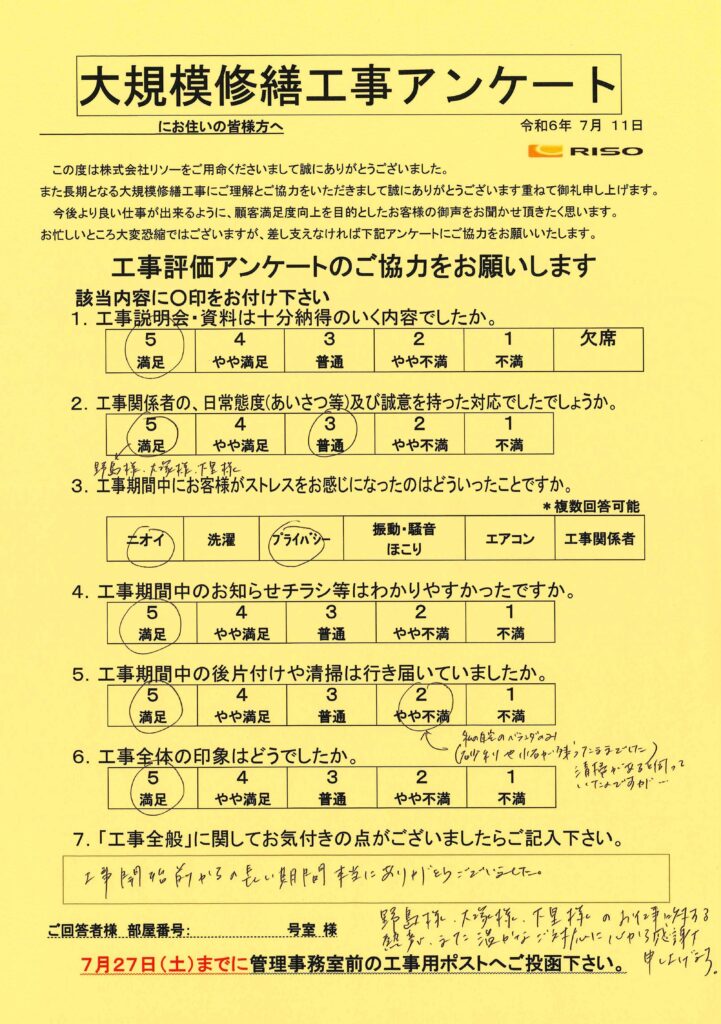 大規模修繕工事アンケート
にお住いの皆様方へ
令和6年 7月 11日
RISO
この度は株式会社リソーをご用命くださいまして誠にありがとうございました。
また長期となる大規模修繕工事にご理解とご協力をいただきまして誠にありがとうございます重ねて御礼申し上げます。
今後より良い仕事が出来るように、顧客満足度向上を目的としたお客様の御声をお聞かせ頂きたく思います。
お忙しいところ大変恐縮ではございますが、差し支えなければ下記アンケートにご協力をお願いいたします。
工事評価アンケートのご協力をお願いします
該当内容に〇印をお付け下さい
1. 工事説明会・資料は十分納得のいく内容でしたか。
5 4 3 2 1 欠席
満足 やや満足 普通 やや不満 不満
2. 工事関係者の、日常態度(あいさつ等)及び誠意を持った対応でしたでしょうか。
5 4 3 2 1
満足 やや満足 普通 やや不満 不満
野島様、大塚様、下里様
3. 工事期間中にお客様がストレスをお感じになったのはどういったことですか。
*複数回答可能
ニオイ 洗濯 プライバシー 振動・騒音 ほこり エアコン 工事関係者
4. 工事期間中のお知らせチラシ等はわかりやすかったですか。
5 4 3 2 1
満足 やや満足 普通 やや不満 不満
5. 工事期間中の後片付けや清掃は行き届いていましたか。
5 4 3 2 1
満足 やや満足 普通 やや不満 不満
私の自宅のベランダのみ
(砂利や小石が残ったままでした)
清掃があると伺って
いたのですが…
6. 工事全体の印象はどうでしたか。
5 4 3 2 1
満足 やや満足 普通 やや不満 不満
7. 「工事全般」に関してお気付きの点がございましたらご記入下さい。
工事開始前からの長い期間本当にありがとうございました。
野島様、大塚様、下里様のお仕事に対する
熱意、また温かなご対応に心から感謝
申し上げます。
ご回答者様 部屋番号: 号室 様
7月27日(土)までに管理事務室前の工事用ポストへご投函下さい。